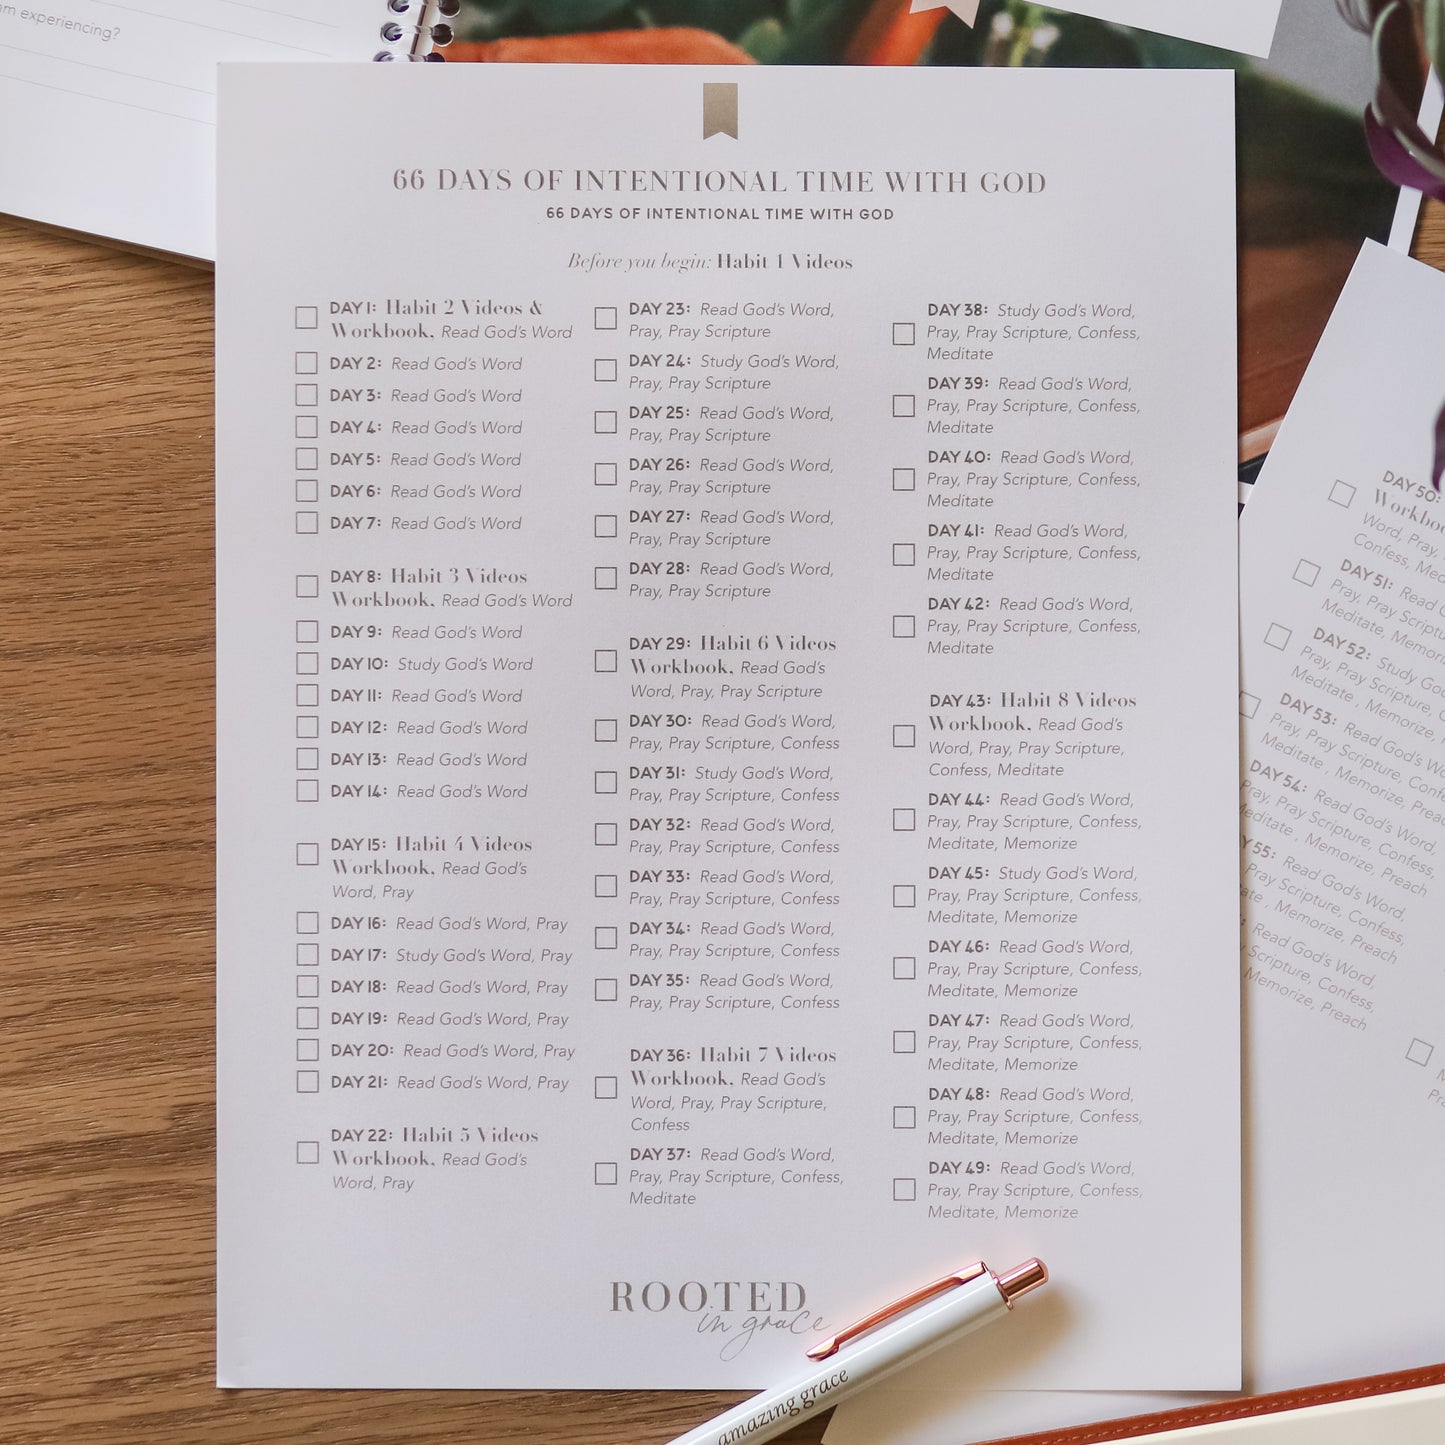 am experiencing?
66 DAYS OF INTENTIONAL TIME WITH GOD
66 DAYS OF INTENTIONAL TIME WITH GOD
Before you begin: Habit 1 Videos
DAY 1: Habit 2 Videos &
Workbook, Read God's Word
DAY 2: Read God's Word
DAY 3: Read God's Word
DAY 4: Read God's Word
DAY 5: Read God's Word
DAY 6: Read God's Word
DAY 7: Read God's Word
DAY 8: Habit 3 Videos
Workbook, Read God's Word
DAY 9: Read God's Word
DAY 10: Study God's Word
DAY 11: Read God's Word
DAY 12: Read God's Word
DAY 13: Read God's Word
DAY 14: Read God's Word
DAY 15: Habit 4 Videos
Workbook, Read God's
Word, Pray
DAY 16: Read God's Word, Pray
DAY 17: Study God's Word, Pray
DAY 18: Read God's Word, Pray
DAY 19: Read God's Word, Pray
DAY 20: Read God's Word, Pray
DAY 21: Read God's Word, Pray
DAY 22: Habit 5 Videos
Workbook, Read God's
Word, Pray
DAY 23: Read God's Word,
Pray, Pray Scripture
DAY 24: Study God's Word,
Pray, Pray Scripture
DAY 25: Read God's Word,
Pray, Pray Scripture
DAY 26: Read God's Word,
Pray, Pray Scripture
DAY 27: Read God's Word,
Pray, Pray Scripture
DAY 28: Read God's Word,
Pray, Pray Scripture
DAY 29: Habit 6 Videos
Workbook, Read God's
Word, Pray, Pray Scripture
DAY 30: Read God's Word,
Pray, Pray Scripture, Confess
DAY 31: Study God's Word,
Pray, Pray Scripture, Confess
DAY 32: Read God's Word,
Pray, Pray Scripture, Confess
DAY 33: Read God's Word,
Pray, Pray Scripture, Confess
DAY 34: Read God's Word,
Pray, Pray Scripture, Confess
DAY 35: Read God's Word,
Pray, Pray Scripture, Confess
DAY 36: Habit 7 Videos
Workbook, Read God's
Word, Pray, Pray Scripture,
Confess
DAY 37: Read God's Word,
Pray, Pray Scripture, Confess,
Meditate
DAY 38: Study God's Word,
Pray, Pray Scripture, Confess,
Meditate
DAY 39: Read God's Word,
Pray, Pray Scripture, Confess,
Meditate
DAY 40: Read God's Word,
Pray, Pray Scripture, Confess,
Meditate
DAY 41: Read God's Word,
Pray, Pray Scripture, Confess,
Meditate
DAY 42: Read God's Word,
Pray, Pray Scripture, Confess,
Meditate
DAY 43: Habit 8 Videos
Workbook, Read God's
Word, Pray, Pray Scripture,
Confess, Meditate
DAY 44: Read God's Word,
Pray, Pray Scripture, Confess,
Meditate, Memorize
DAY 45: Study God's Word,
Pray, Pray Scripture, Confess,
Meditate, Memorize
DAY 46: Read God's Word,
Pray, Pray Scripture, Confess,
Meditate, Memorize
DAY 47: Read God's Word,
Pray, Pray Scripture, Confess,
Meditate, Memorize
DAY 48: Read God's Word,
Pray, Pray Scripture, Confess,
Meditate, Memorize
DAY 49: Read God's Word,
Pray, Pray Scripture, Confess,
Meditate, Memorize
ROOTED
in grace
amazing grace
DAY 50:
Word, Pray,
Confess,
DAY 51: Read
Pray, Pray
Meditate,
DAY 52: Study
Pray, Pray Scripture,
Meditate, Memorize,
DAY 53: Read God's
Pray, Pray Scripture,
Meditate, Memorize,
DAY 54: Read God's Word,
Pray, Pray Scripture, Confess,
Meditate, Memorize, Preach
55: Read God's Word,
Pray Scripture, Confess,
Memorize, Preach
Read God's Word,
Scripture, Confess,
Memorize, Preach